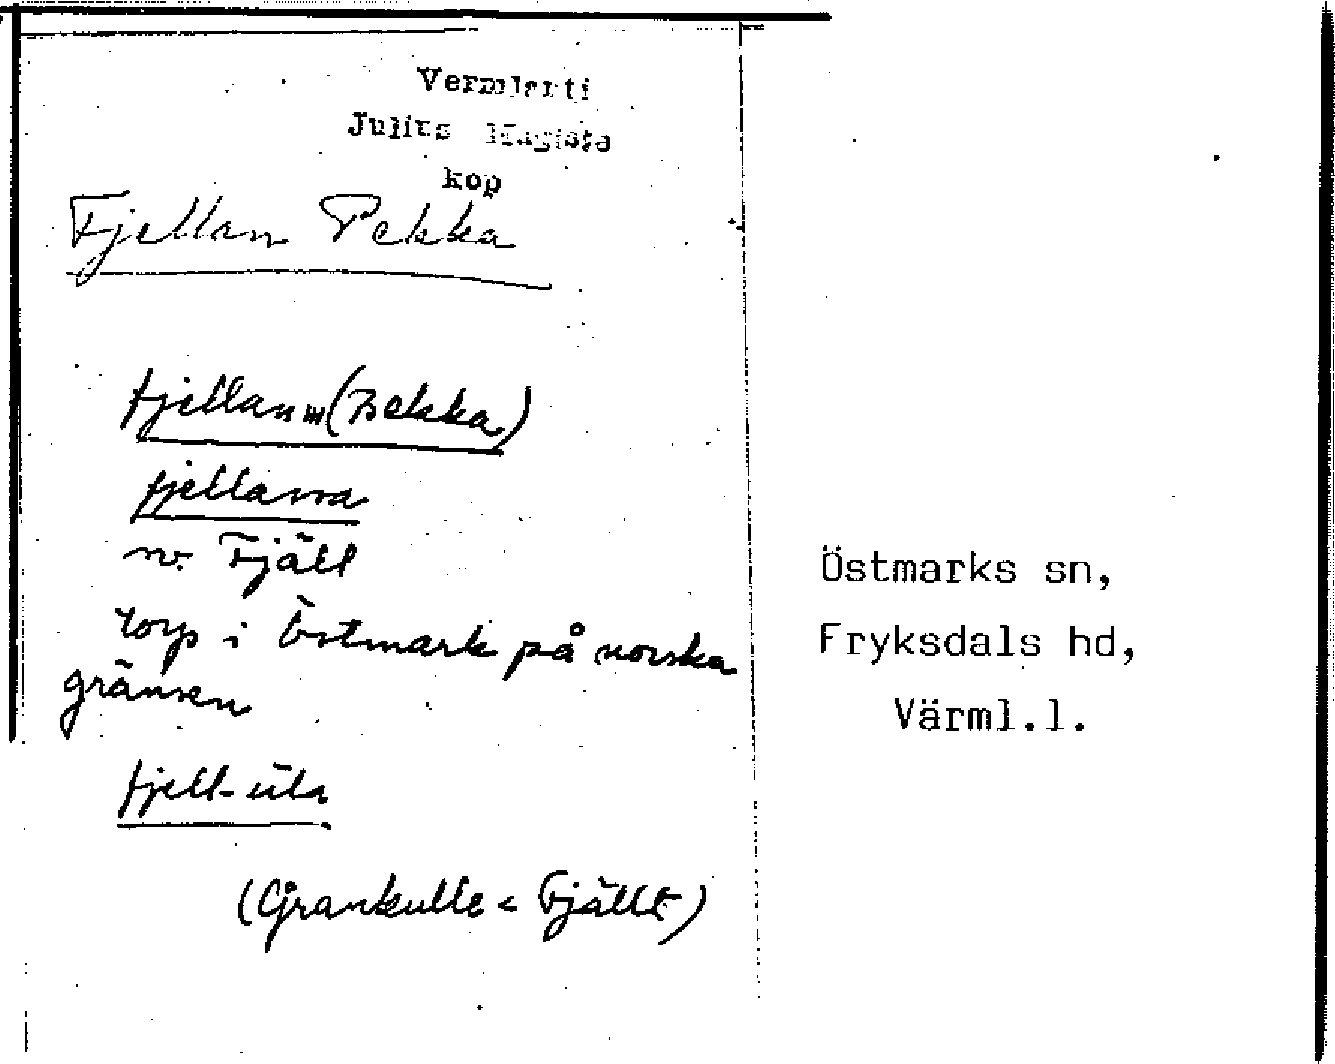 Vermlanti
Julius Mägiste
kop
Fjellan Pekka
fjellan (Bekka)
fjellassa
Fjäll
torp i Östmark på norska
gränsen
fjell-
(Grankulle < Fjället)
Östmarks sn,
Fryksdals hd,
Värml.l.